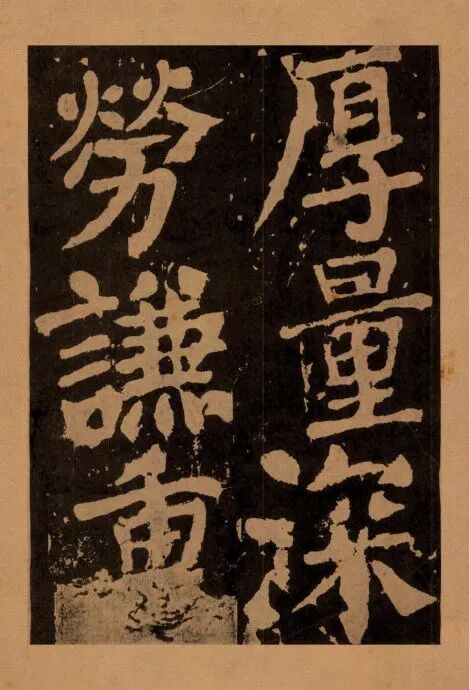 厚量深
勞謙